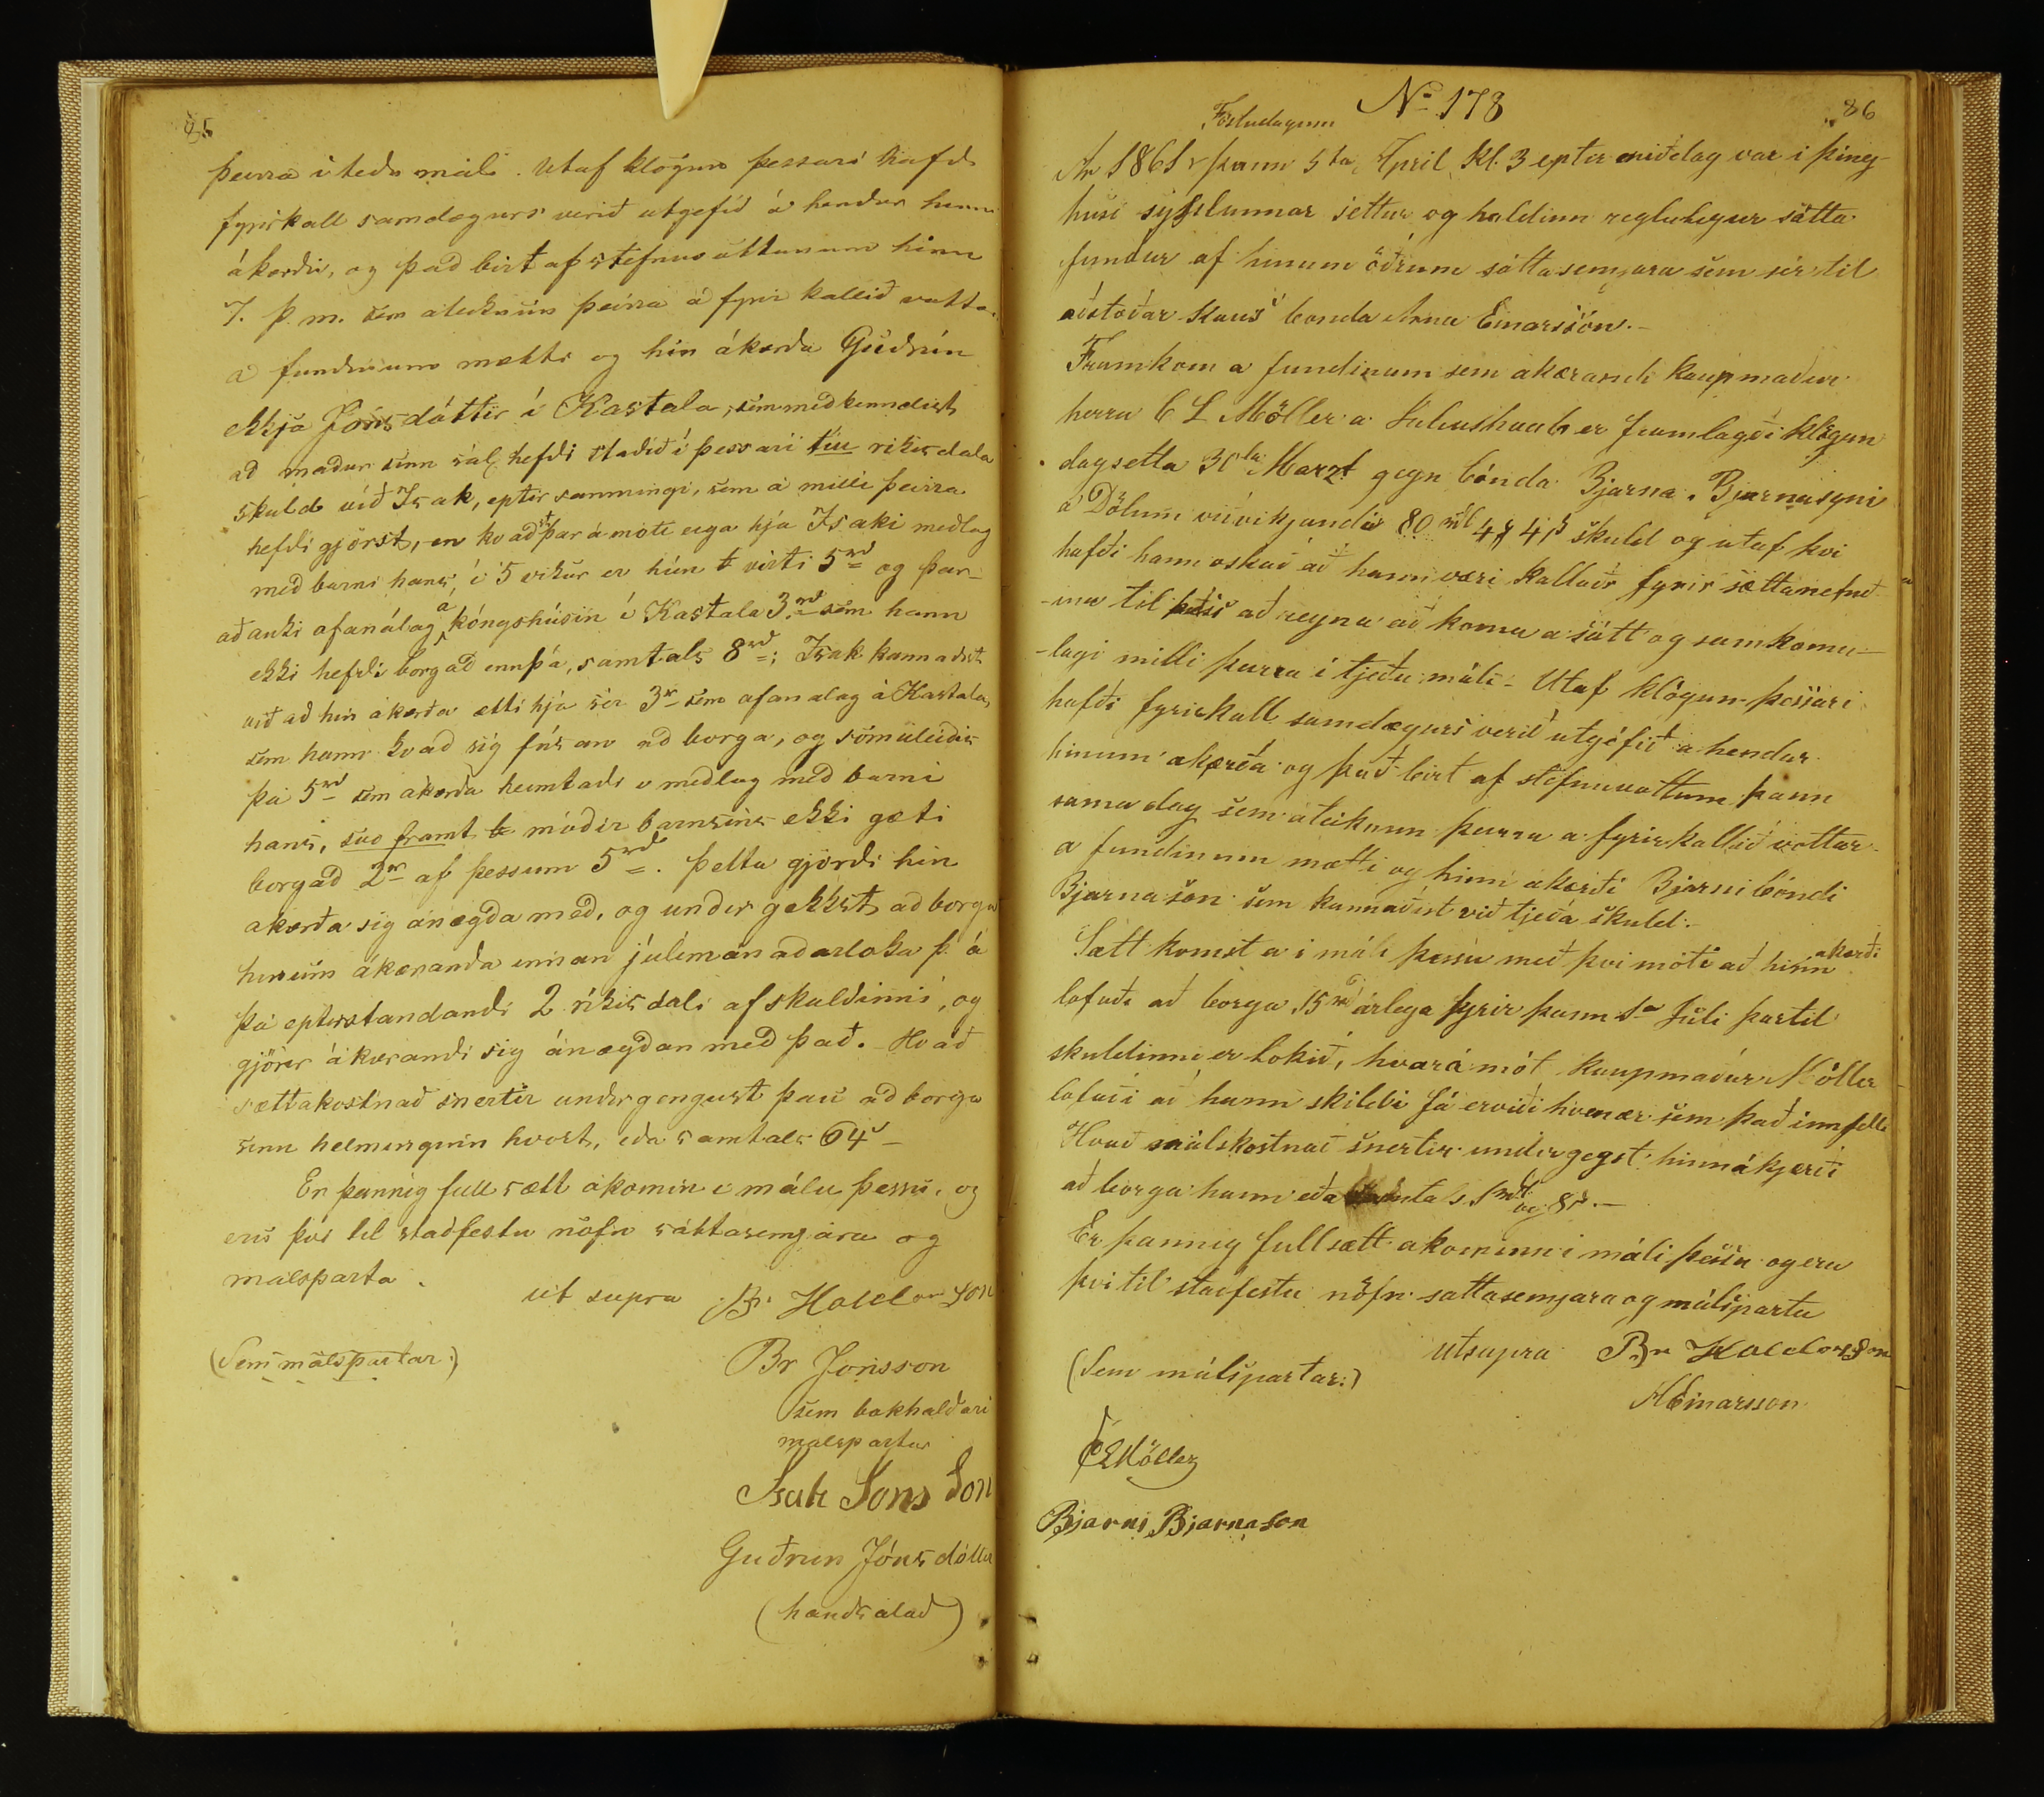 85
þeirra í teðu máli. Utaf klögun þessari hafði
fyrirkall samdægurs verið utgefið á hendur henni
ákærðu, og það birt af stefnuvottunum hinn
7. þ. m. sem ateiknun þeirra á fyrirkallið vottar.
á fundinum mætti og hin ákærða Guðrún
ekkja Jónsdóttir í Kastala, sem meðkenndist
að maður sinn sál. hefði staðið í þessari tíu rikisdala
skuld við Isak, eptir samningi, sem á milli þeirra
hefði gjörst, en kvaðst þar á móti eiga hjá Isaki meðlag
með barni hans, í 5 vikur er hún virti 5 rd og þar-
að auki afanálag á kóngshúsin í Kastala 3 rd sem hann
ekki hefði borgað ennþá, samtals 8 rd; Isak kannaðist
við að hin ákærða ætti hjá sér 3 r sem afanalag á Kastala,
sem hann kvað sig fúsan að borga, og sömuleiðis
þá 5 rd sem ákærða heimtaði í meðlag með barni
hans, svo framt móðir barnsins ekki gæti
borgað 2 r af þessum 5 rd. Þetta gjörði hin
akærða sig ánægða með, og undirgekkst að borga
hinum ákæranda innan júlímánaðarloka þ. á
þá eptirstandandi 2 ríkisdali af skuldinni, og
gjörir ákærandi sig ánægðan með það. Hvað
sættakostnað snertir undirgengust þau að borga
sinn helminginn hvort, eða samtals 64 s
Er þannig full sætt ákomin í máli þessu, og
eru því til staðfestu nöfn sáttasemjara og
málsparta.
ut supra Br Halldorsson
(Sem málspartar:) Br Jonsson
sem bakhaldari
malspartur
Isak Jons Son
Guðrun Jónsdóttir
(handsalað)
86
No 178
Föstudaginn
Ar 1861 þann 5ta April Kl. 3 eptir middag var i þing-
húsi sýslunnar settur og haldinn reglulegur sátta
fundur af hinum öðrum sáttasemjara sem sér til
aðstoðar kaus bonda Arna Einarsson.-
Framkom a fundinum sem akærandi kaupmaður
herra C L Möller a Juliushaab er framlagði klögun
dagsetta 30ta Marzt gegn bónda Bjarna Bjarnasyni
á Dölum viðvíkjandi 80 rd 4 4 s skuld og utaf þvi
hafði hann oskað að hann væri kallaðr fyrir sættanefnd-
-ina til þess að reyna að koma a sátt og samkomu-
-lagi milli þeirra i tjeðu máli - Utaf klögun þessari
hafði fyrirkall samdægurs verið utgéfið a hendur
hinum akærða og það birt af stefnuvottum þann
sama dag sem áteiknun þeirra a fyrirkallið vottar-
a fundinum mætti og hinn ákærði Bjarni bóndi
Bjarnason sem kannaðist við tjeða skuld.-
Sætt komst a i máli þessu með þvi móti að hinn akærði
lofaði að borga 15 rd árlega fyrir þann 1ta Júli partil
skuldinni er lokið, hvará mót kaupmaður Möller
lofaði að hann skildi fá erviði hvenær sem það innfelli
Hvað málskostnað snertir undirgegst hinn ákjærði
að borga hann eða samtals 1 rd og 8 s.-
Er þannig full sætt akominn i máli þessu og eru
þvi til staðfestu nöfn sattasemjara og málsparta
utsupra Br Halldorsson
(Sem málspartar:) AEinarsson
CLMöller
Bjarni Bjarnason